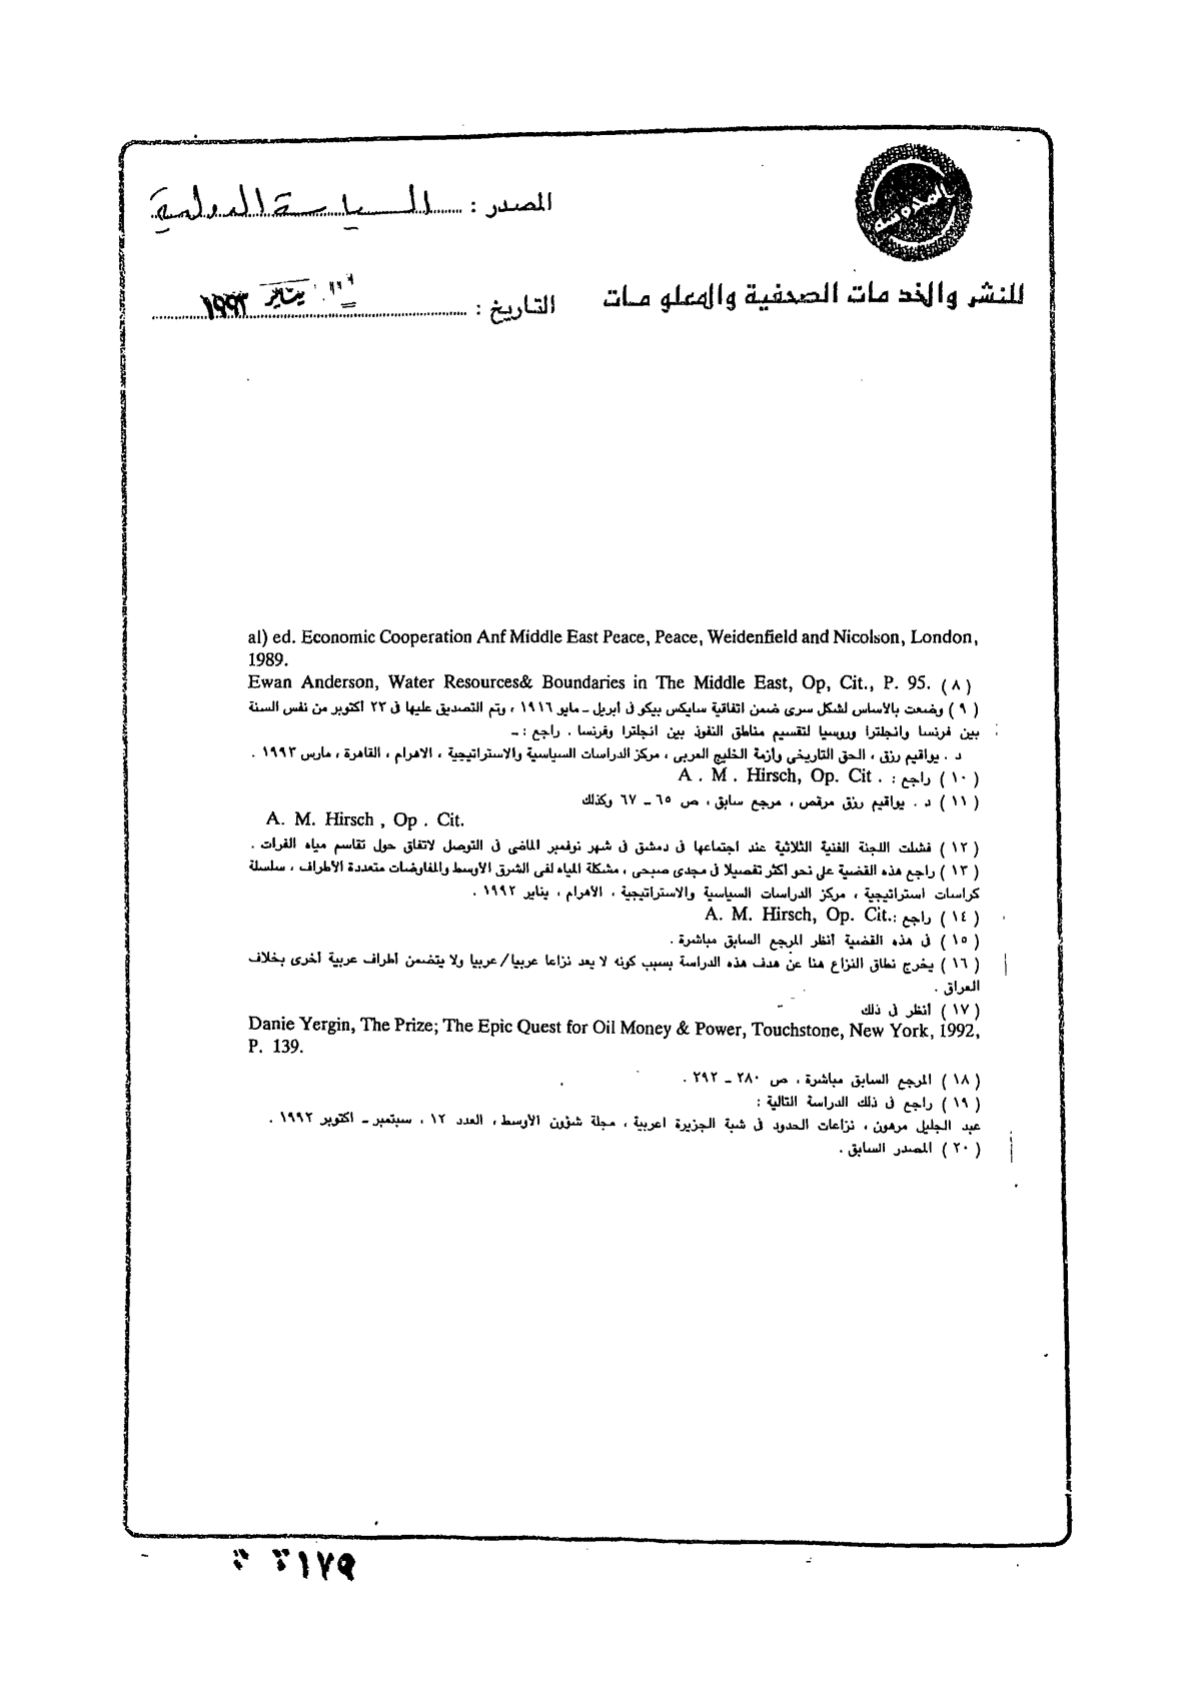 المصدر : السياسة الدولية
للنشر والخدمات الصحفية والمعلومات
التاريخ : يناير ١٩٩٣
al) ed. Economic Cooperation Anf Middle East Peace, Peace, Weidenfield and Nicolson, London,
1989.
Ewan Anderson, Water Resources& Boundaries in The Middle East, Op, Cit., P. 95. ( ٨ )
( ٩ ) وضعت بالأساس لشكل سرى ضمن اتفاقية سايكس بيكو فى ابريل ـ مايو ١٩١٦ ، وتم التصديق عليها فى ٢٣ اكتوبر من نفس السنة
بين فرنسا وانجلترا وروسيا لتقسيم مناطق النفوذ بين انجلترا وفرنسا . راجع :ـ
د . يواقيم رزق ، الحق التاريخى وأزمة الخليج العربى ، مركز الدراسات السياسية والاستراتيجية ، الاهرام ، القاهرة ، مارس ١٩٩٣ .
( ١٠ ) راجع : A . M . Hirsch, Op. Cit .
( ١١ ) د . يواقيم رزق مرقص ، مرجع سابق ، ص ٦٥ ـ ٦٧ وكذلك
A. M. Hirsch , Op . Cit.
( ١٢ ) فشلت اللجنة الفنية الثلاثية عند اجتماعها فى دمشق فى شهر نوفمبر الماضى فى التوصل لاتفاق حول تقاسم مياه الفرات .
( ١٣ ) راجع هذه القضية على نحو اكثر تفصيلا فى مجدى صبحى ، مشكلة المياه لفى الشرق الأوسط والمفاوضات متعددة الأطراف ، سلسلة
كراسات استراتيجية ، مركز الدراسات السياسية والاستراتيجية ، الأهرام ، يناير ١٩٩٢ .
( ١٤ ) راجع :A. M. Hirsch, Op. Cit.
( ١٥ ) فى هذه القضية أنظر المرجع السابق مباشرة .
( ١٦ ) يخرج نطاق النزاع هنا عن هدف هذه الدراسة بسبب كونه لا يعد نزاعا عربيا/ عربيا ولا يتضمن أطراف عربية أخرى بخلاف
العراق .
( ١٧ ) أنظر فى ذلك
Danie Yergin, The Prize; The Epic Quest for Oil Money & Power, Touchstone, New York, 1992,
P. 139.
( ١٨ ) المرجع السابق مباشرة ، ص ٢٨٠ ـ ٢٩٢ .
( ١٩ ) راجع فى ذلك الدراسة التالية :
عبد الجليل مرهون ، نزاعات الحدود فى شبة الجزيرة اعربية ، مجلة شؤون الأوسط ، العدد ١٢ ، سبتمبر ـ اكتوبر ١٩٩٢ .
( ٢٠ ) المصدر السابق .
١٧٩